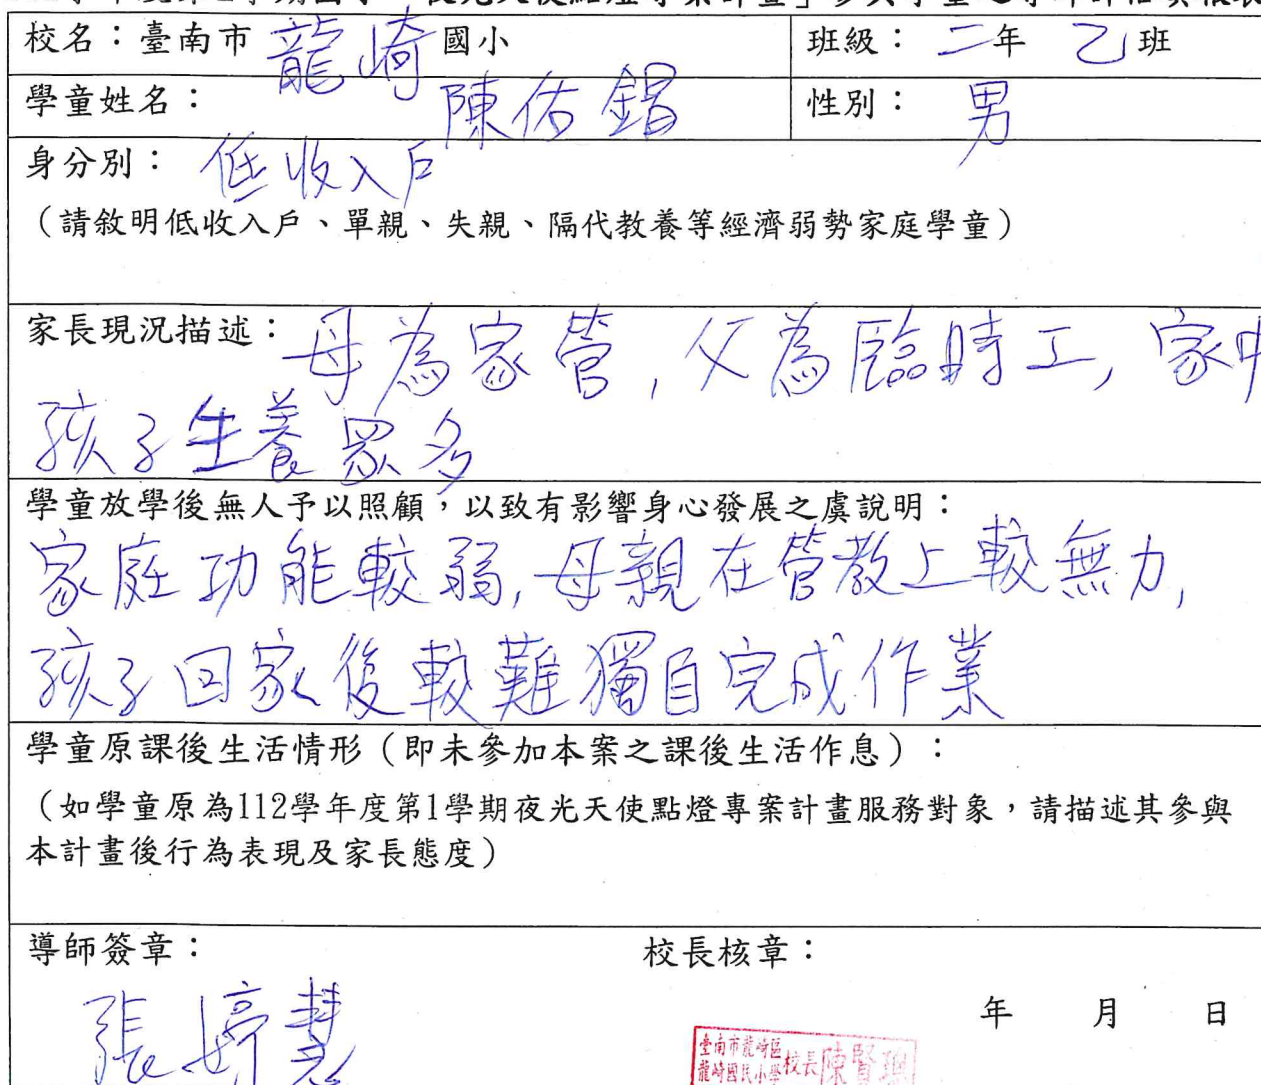 夜光天使點燈專案計畫」參與學童之導師評估填報表
校名：臺南市 龍崎 國小 班級： 二年 乙班
學童姓名： 陳佑錩 性別： 男
身分別： 低收入戶
（請敘明低收入戶、單親、失親、隔代教養等經濟弱勢家庭學童）
家長現況描述：母為家管,父為臨時工,家中
孩子生養眾多
學童放學後無人予以照顧，以致有影響身心發展之虞說明：
家庭功能較弱,母親在管教上較無力,
孩子回家後較難獨自完成作業
學童原課後生活情形（即未參加本案之課後生活作息）：
（如學童原為112學年度第1學期夜光天使點燈專案計畫服務對象，請描述其參與
本計畫後行為表現及家長態度）
導師簽章： 校長核章：
張婷慧
年 月 日
臺南市龍崎區
龍崎國民小學
校長陳賢聰